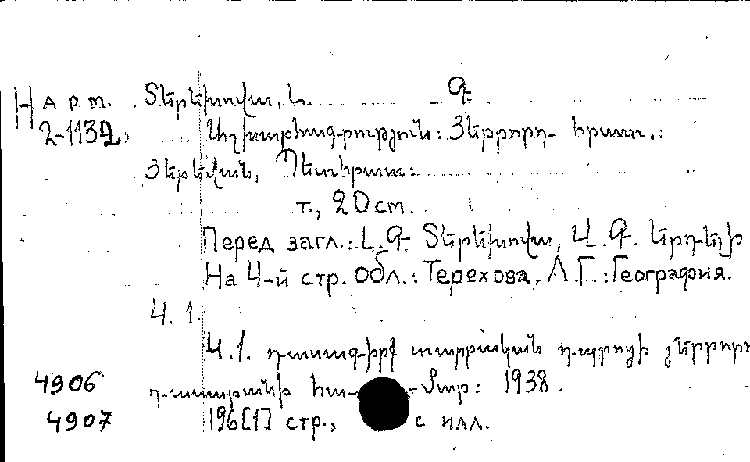 Н арт. Տերեխովա, Լ. Գ.
2-1132, Աշխարհագրություն: Յերրորդ հրատ.:
Յերեվան, Պետհրատ:
т., 20 cm
Перед загл.: Լ. Գ. Տերեխովա, Վ. Գ. Երդելի
На 4-й стр. обл.: Терехова, Л. Г.: География.
Ч. 1.
Ч. 1. դասագիրք տարրական դպրոցի յերրորդ
4906 դասարանի համար: 1938.
4907 196[1] стр., с илл.